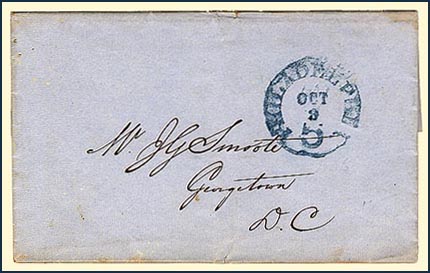 PHILADELPHIA
OCT
3
5
Mr. J G Smoote
Georgetown
D. C